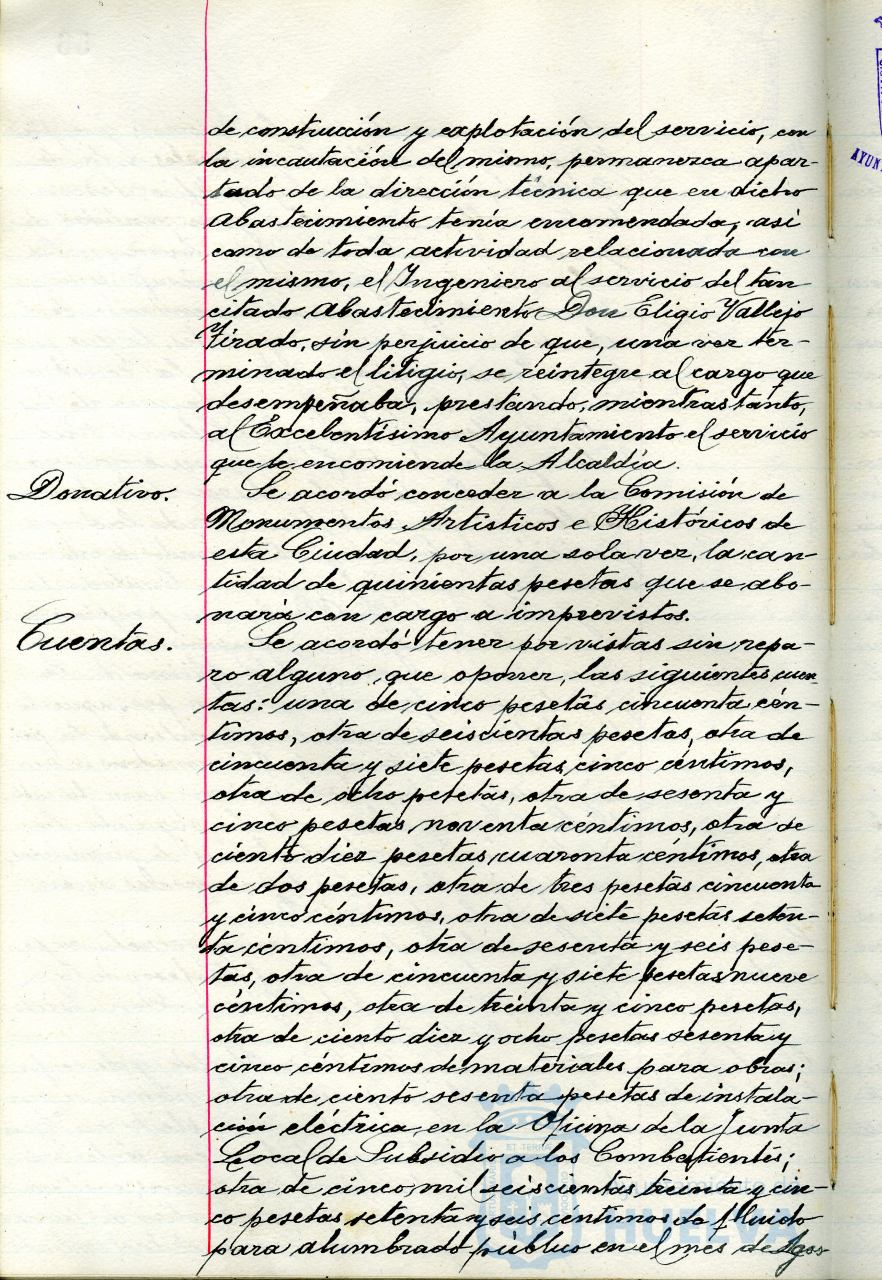 de construcción y explotación del servicio, con
la incautación del mismo, permanezca apar-
tado de la dirección técnica que en dicho
Abastecimiento tenía encomendada, así
como de toda actividad relacionada con
el mismo, el Ingeniero al servicio del tan
citado Abastecimiento Don Eligio Vallejo
Tirado, sin perjuicio de que, una vez ter-
minado el litigio, se reintegre al cargo que
desempeñaba, prestando, mientras tanto,
al Excelentísimo Ayuntamiento el servicio
que le encomiende la Alcaldía.
Donativo.
Se acordó conceder a la Comisión de
Monumentos Artísticos e Históricos de
esta Ciudad, por una sola vez, la can-
tidad de quinientas pesetas que se abo-
nará con cargo a imprevistos.
Cuentas.
Se acordó tener por vistas sin repa-
ro alguno que oponer, las siguientes cuen-
tas: una de cinco pesetas cincuenta cén-
timos, otra de seiscientas pesetas, otra de
cincuenta y siete pesetas cinco céntimos,
otra de ocho pesetas, otra de sesenta y
cinco pesetas noventa céntimos, otra de
ciento diez pesetas cuaronta céntimos, otra
de dos pesetas, otra de tres pesetas cincuenta
y cinco céntimos, otra de siete pesetas seten-
ta céntimos, otra de sesenta y seis pese-
tas, otra de cincuenta y siete pesetas nueve
céntimos, otra de treinta y cinco pesetas,
otra de ciento diez y ocho pesetas sesenta y
cinco céntimos de materiales para obras;
otra de ciento sesenta pesetas de instala-
ción eléctrica en la Oficina de la Junta
Local de Subsidio a los Combatientes;
otra de cinco mil seiscientas treinta y cin-
co pesetas setenta y seis céntimos de fluido
para alumbrado público en el mes de Agos-
HUELVA
AYUN